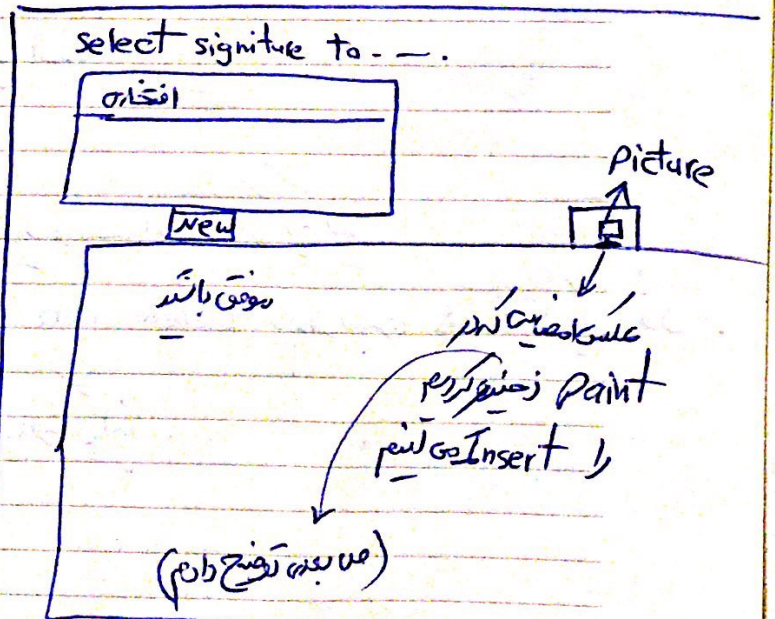 select signiture to - - .
افتخاری
Picture
New
موفق باشید
عکس امضایی که در
Paint ذخیره کردیم
را Insert می کنیم
(ص بعدی توضیح دادم)